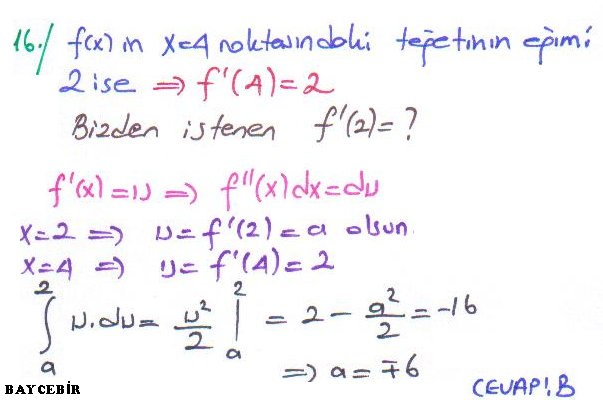 16./ f(x) in x=4 noktasındaki teğetinin eğimi
2 ise ⇒ f'(4)=2
Bizden istenen f'(2)=?
f'(x)=u ⇒ f''(x)dx=du
x=2 ⇒ u=f'(2)=a olsun.
x=4 ⇒ u=f'(4)=2
∫ₐ² u.du = u²/2 |ₐ² = 2 - a²/2 = -16
⇒ a=∓6
BAYCEBİR CEVAP!.B